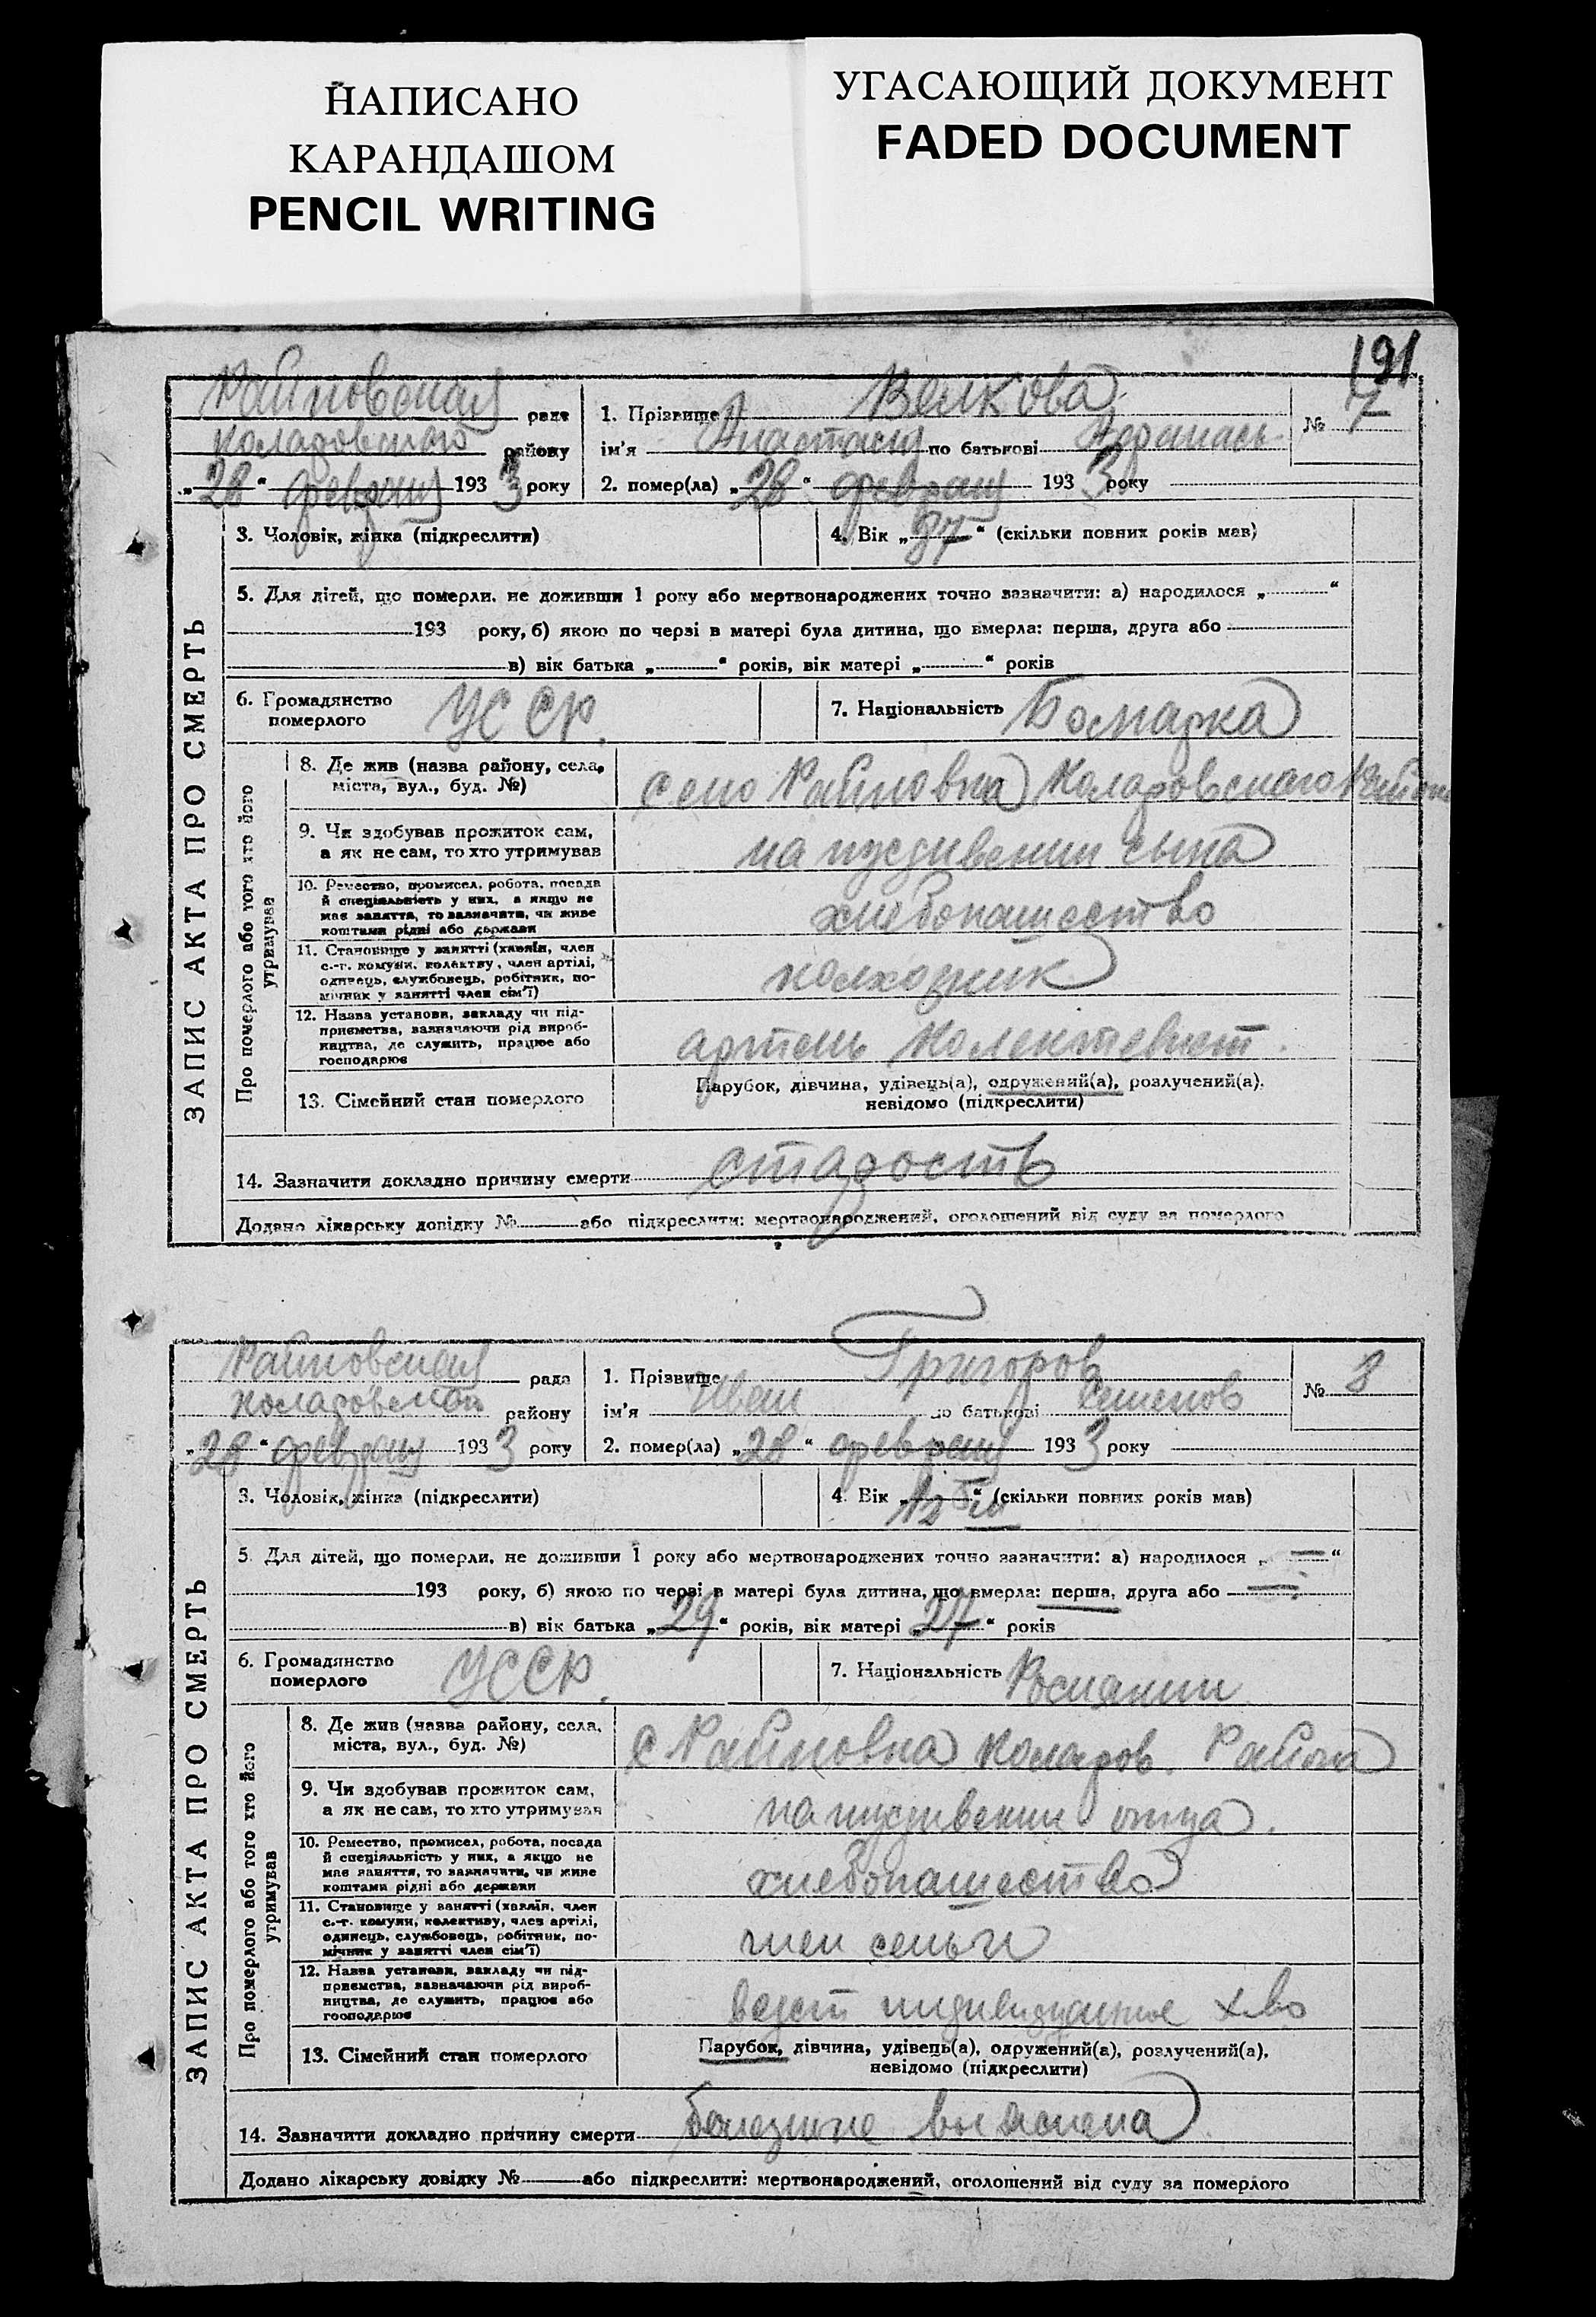 НАПИСАНО
КАРАНДАШОМ
PENCIL WRITING
УГАСАЮЩИЙ ДОКУМЕНТ
FADED DOCUMENT
191
Райновская рада
Коларовского району
„28“ февраля 1933 року
1. Прізвище Велкова
ім'я Анастасия по батькові Афанась
2. помер(ла) „28“ февраля 1933 року
№ 7
ЗАПИС АКТА ПРО СМЕРТЬ
3. Чоловік, жінка (підкреслити)
4. Вік „87“ (скільки повних років мав)
5. Для дітей, що померли, не доживши 1 року або мертвонароджених точно зазначити: а) народилося „ “
193 року, б) якою по черзі в матері була дитина, що вмерла: перша, друга або
в) вік батька „ “ років, вік матері „ “ років
6. Громадянство
померлого
УССР.
7. Національність Болгарка
Про померлого або того хто його
утримував
8. Де жив (назва району, села,
міста, вул., буд. №)
село Райновка Коларовского Района
9. Чи здобував прожиток сам,
а як не сам, то хто утримував
на иждивении сына
10. Ремество, промисел, робота, посада
й спеціяльність у них, а якщо не
має заняття, то зазначити, чи живе
коштами рідні або держави
хлебопашество
11. Становище у занятті (хазяїн, член
с.-г. комуни, колективу, член артілі,
одинець, службовець, робітник, по-
мічник у занятті член сім'ї)
колхозник
12. Назва установи, закладу чи під-
приємства, зазначаючи рід вироб-
ництва, де служить, працює або
господарює
артель Колективист.
13. Сімейний стан померлого
Парубок, дівчина, удівець(а), одружений(а), розлучений(а),
невідомо (підкреслити)
14. Зазначити докладно причину смерти старость
Додано лікарську довідку № або підкреслити: мертвонароджений, оголошений від суду за померлого
Райновская рада
Коларовской району
„28“ февраля 1933 року
1. Прізвище Григоров
ім'я Иван по батькові Семенов
2. помер(ла) „28“ февраля 1933 року
№ 8
ЗАПИС АКТА ПРО СМЕРТЬ
3. Чоловік, жінка (підкреслити)
4. Вік „ “ (скільки повних років мав)
5. Для дітей, що померли, не доживши 1 року або мертвонароджених точно зазначити: а) народилося „—“
193 року, б) якою по черзі в матері була дитина, що вмерла: перша, друга або —
в) вік батька „29“ років, вік матері „27“ років
6. Громадянство
померлого
УССР.
7. Національність Росиянин
Про померлого або того хто його
утримував
8. Де жив (назва району, села,
міста, вул., буд. №)
с Райновка Коларов. Района
9. Чи здобував прожиток сам,
а як не сам, то хто утримував
на иждивении отца.
10. Ремество, промисел, робота, посада
й спеціяльність у них, а якщо не
має заняття, то зазначити, чи живе
коштами рідні або держави
хлебопашество
11. Становище у занятті (хазяїн, член
с.-г. комуни, колективу, член артілі,
одинець, службовець, робітник, по-
мічник у занятті член сім'ї)
член семьи
12. Назва установи, закладу чи під-
приємства, зазначаючи рід вироб-
ництва, де служить, працює або
господарює
ведет индивидуальное х-во
13. Сімейний стан померлого
Парубок, дівчина, удівець(а), одружений(а), розлучений(а),
невідомо (підкреслити)
14. Зазначити докладно причину смерти
Додано лікарську довідку № або підкреслити: мертвонароджений, оголошений від суду за померлого